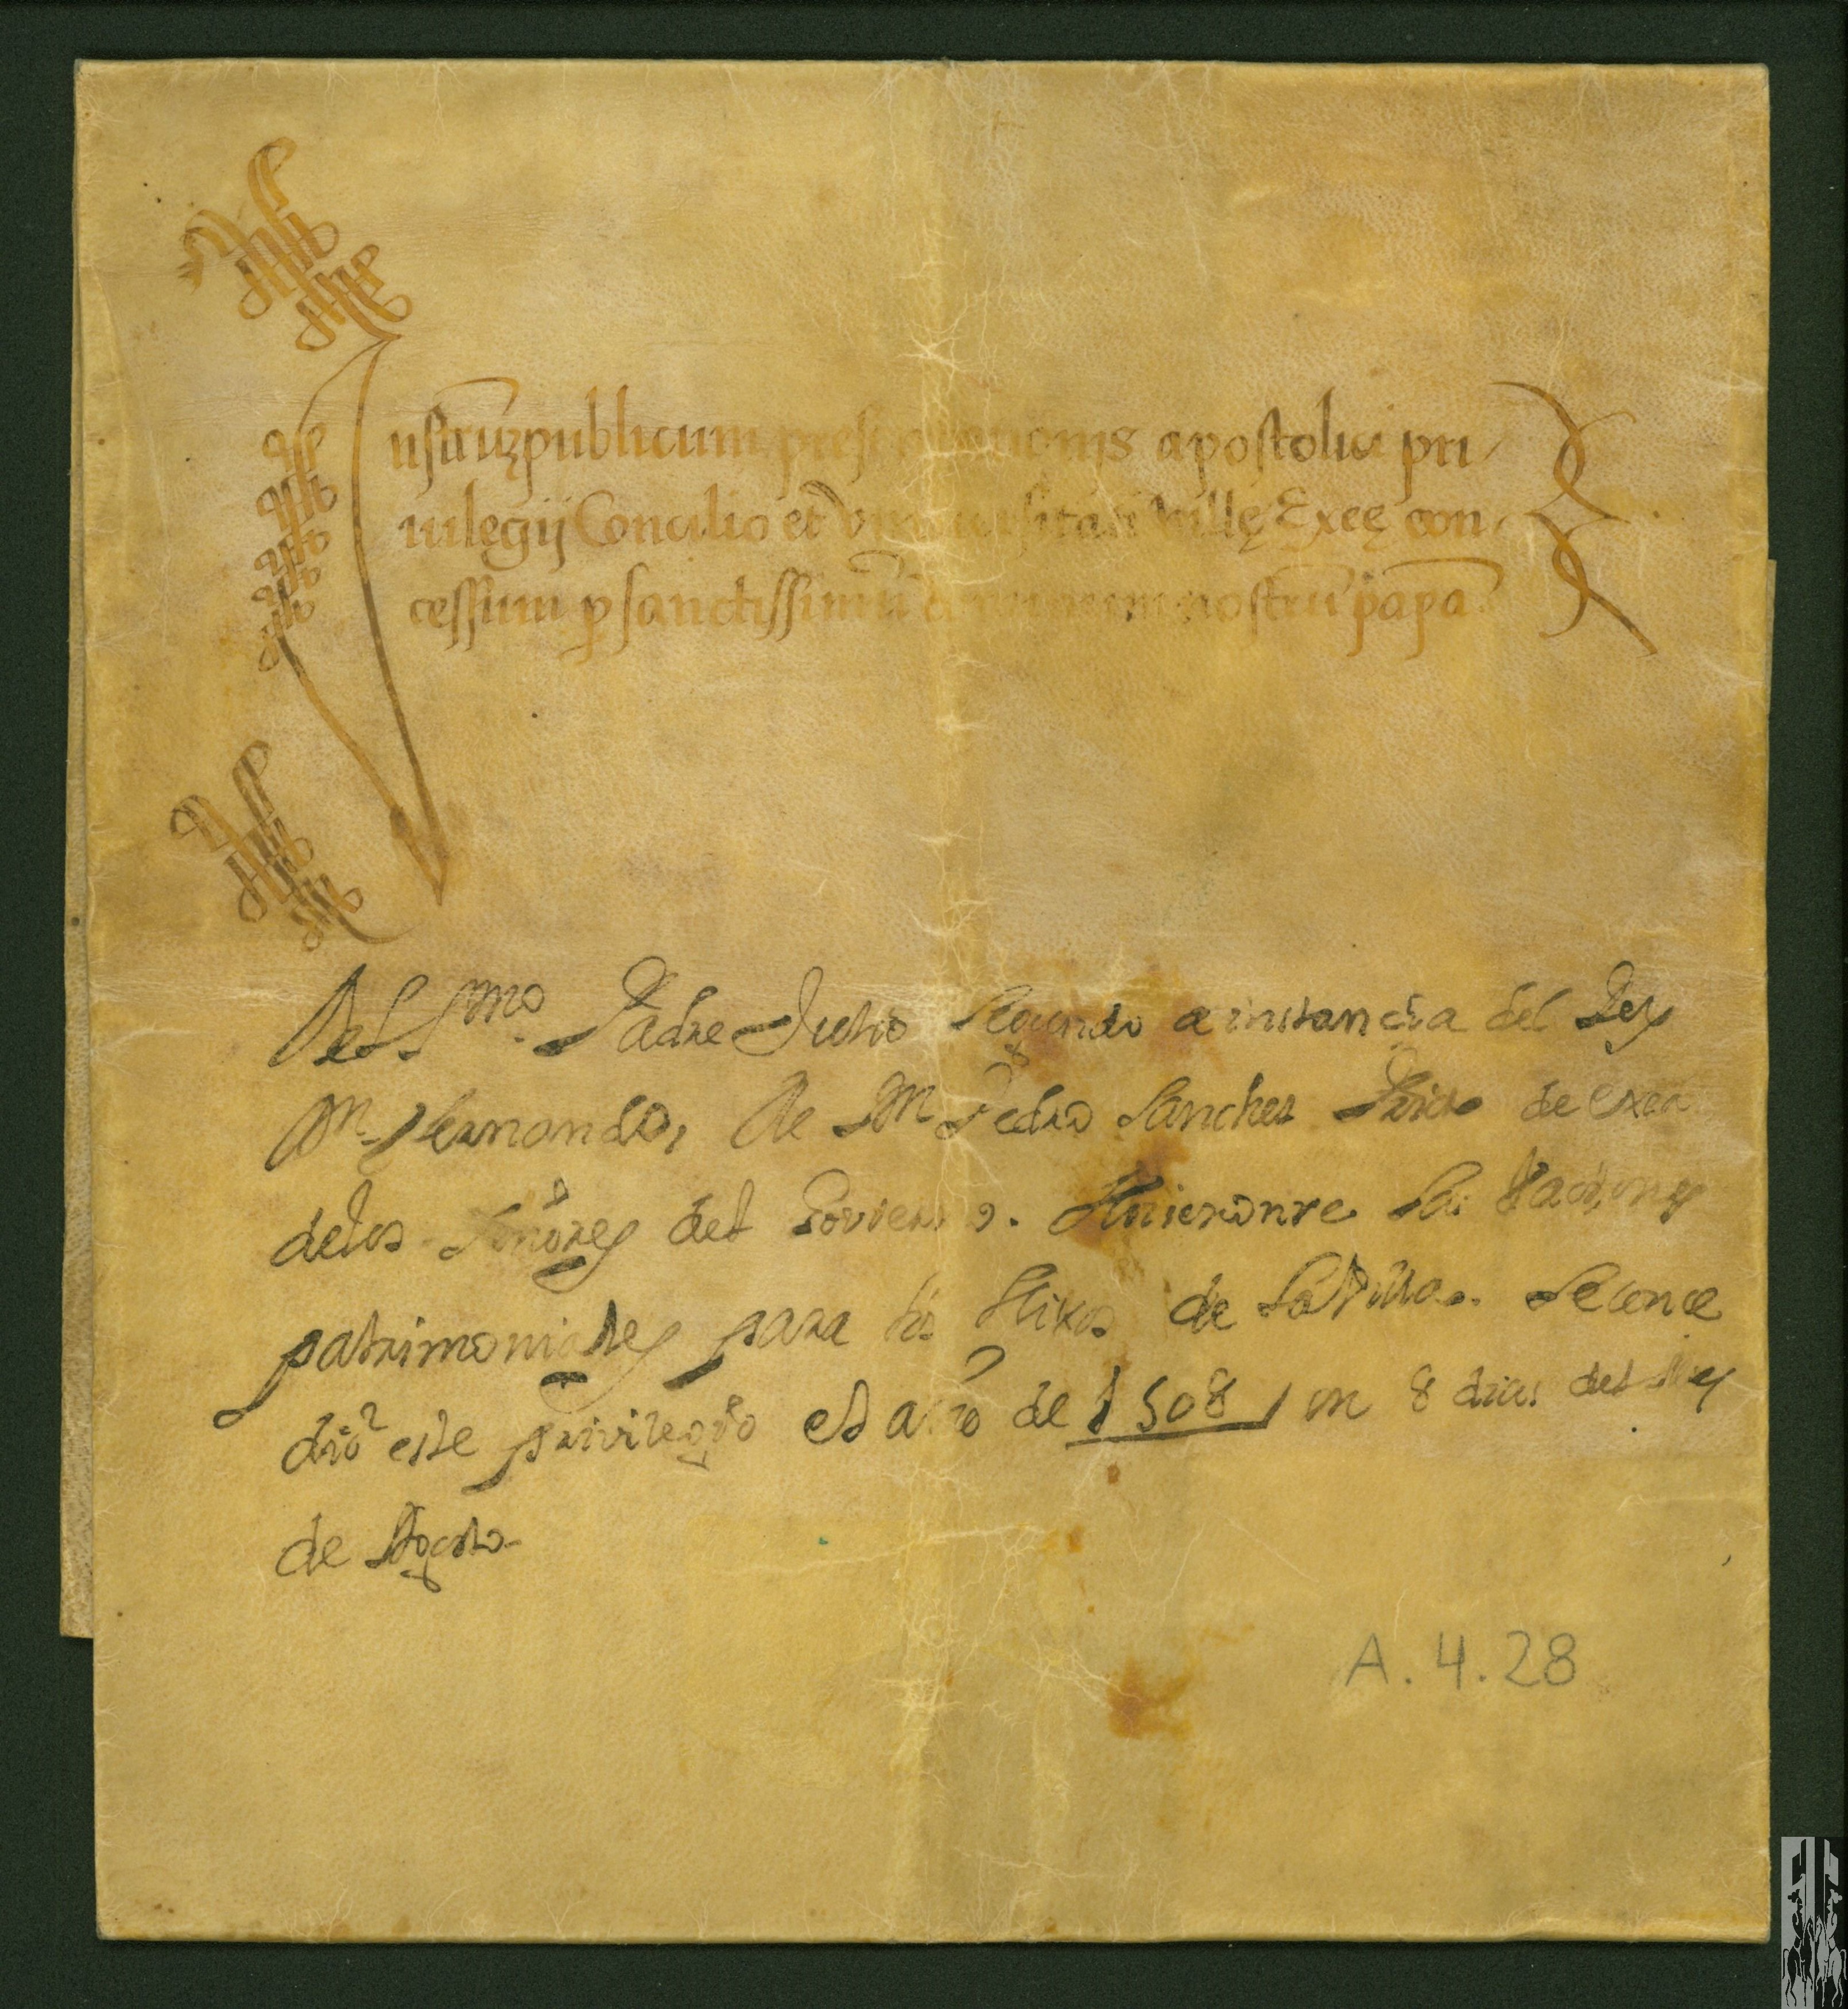 Instrūz publicum apostolici pri
uilegij Concilio et vniuersitati villę Exeę con
cessum p sanctissimū dominum nostrū papā
Del S.mo Padre Julio Segundo a instancia del Rey
Dn. Fernando, De Mn Pedro Sanches de Exea
delos Señores del Govierno. Hicieronse
patrimoniales para los Hixos de la Villa. Se conce
dió este privilegio el año de 1508 en 8 dias del Mes
de Agosto
A.4.28